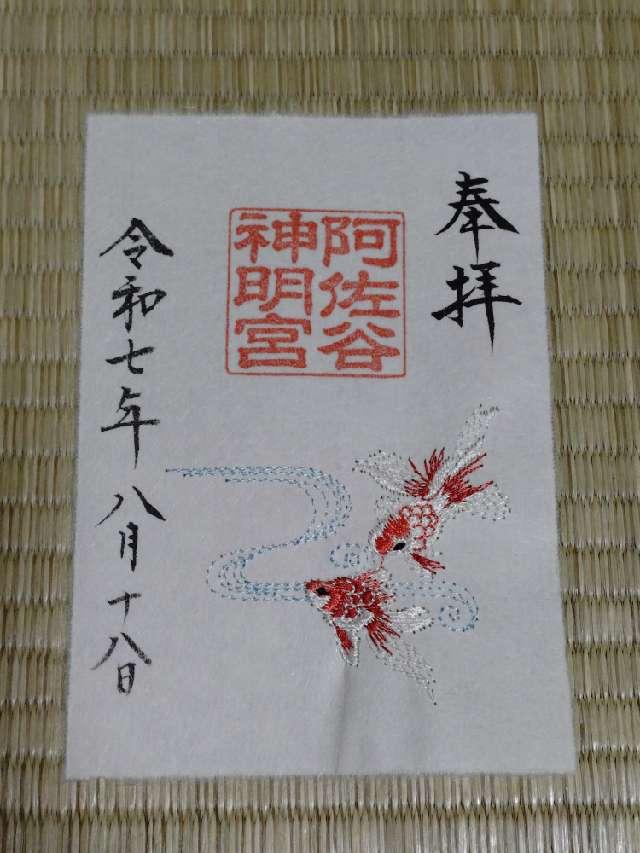 奉拝
阿佐谷
神明宮
令和七年八月十八日